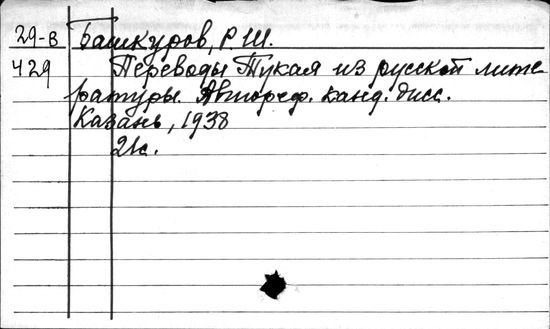 29-в Башкуров, Р.Ш.
429 Переводы Тукая из русской лите
ратуры. Автореф. канд. дисс.
Казань, 1938
21с.